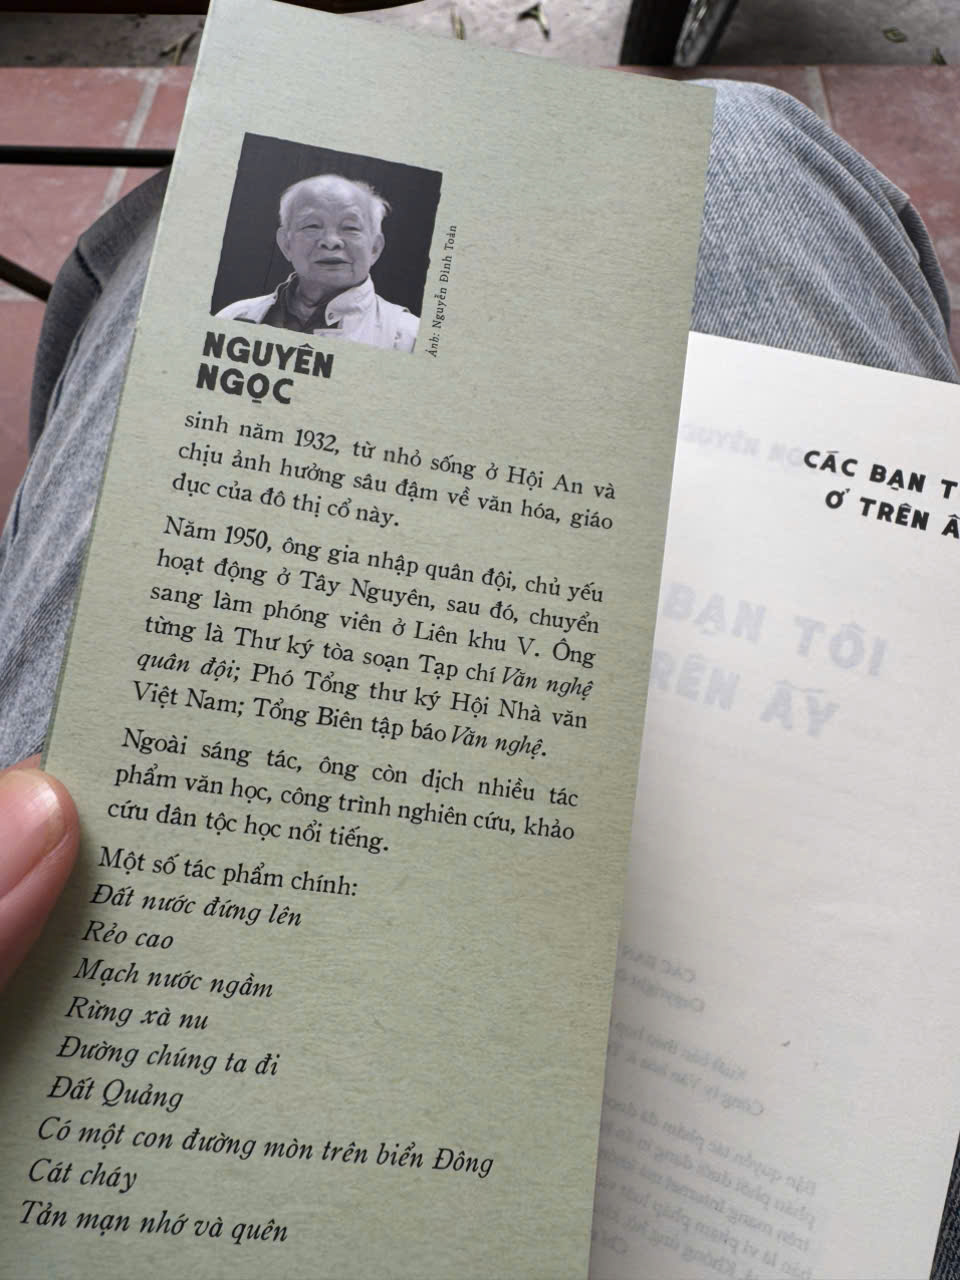 Ảnh: Nguyễn Đình Toán
NGUYÊN
NGỌC
sinh năm 1932, từ nhỏ sống ở Hội An và
chịu ảnh hưởng sâu đậm về văn hóa, giáo
dục của đô thị cổ này.
Năm 1950, ông gia nhập quân đội, chủ yếu
hoạt động ở Tây Nguyên, sau đó, chuyển
sang làm phóng viên ở Liên khu V. Ông
từng là Thư ký tòa soạn Tạp chí Văn nghệ
quân đội; Phó Tổng thư ký Hội Nhà văn
Việt Nam; Tổng Biên tập báo Văn nghệ.
Ngoài sáng tác, ông còn dịch nhiều tác
phẩm văn học, công trình nghiên cứu, khảo
cứu dân tộc học nổi tiếng.
Một số tác phẩm chính:
Đất nước đứng lên
Rẻo cao
Mạch nước ngầm
Rừng xà nu
Đường chúng ta đi
Đất Quảng
Có một con đường mòn trên biển Đông
Cát cháy
Tản mạn nhớ và quên
CÁC BẠN
Ở TRÊN
BẠN TÔI
TRÊN ẤY